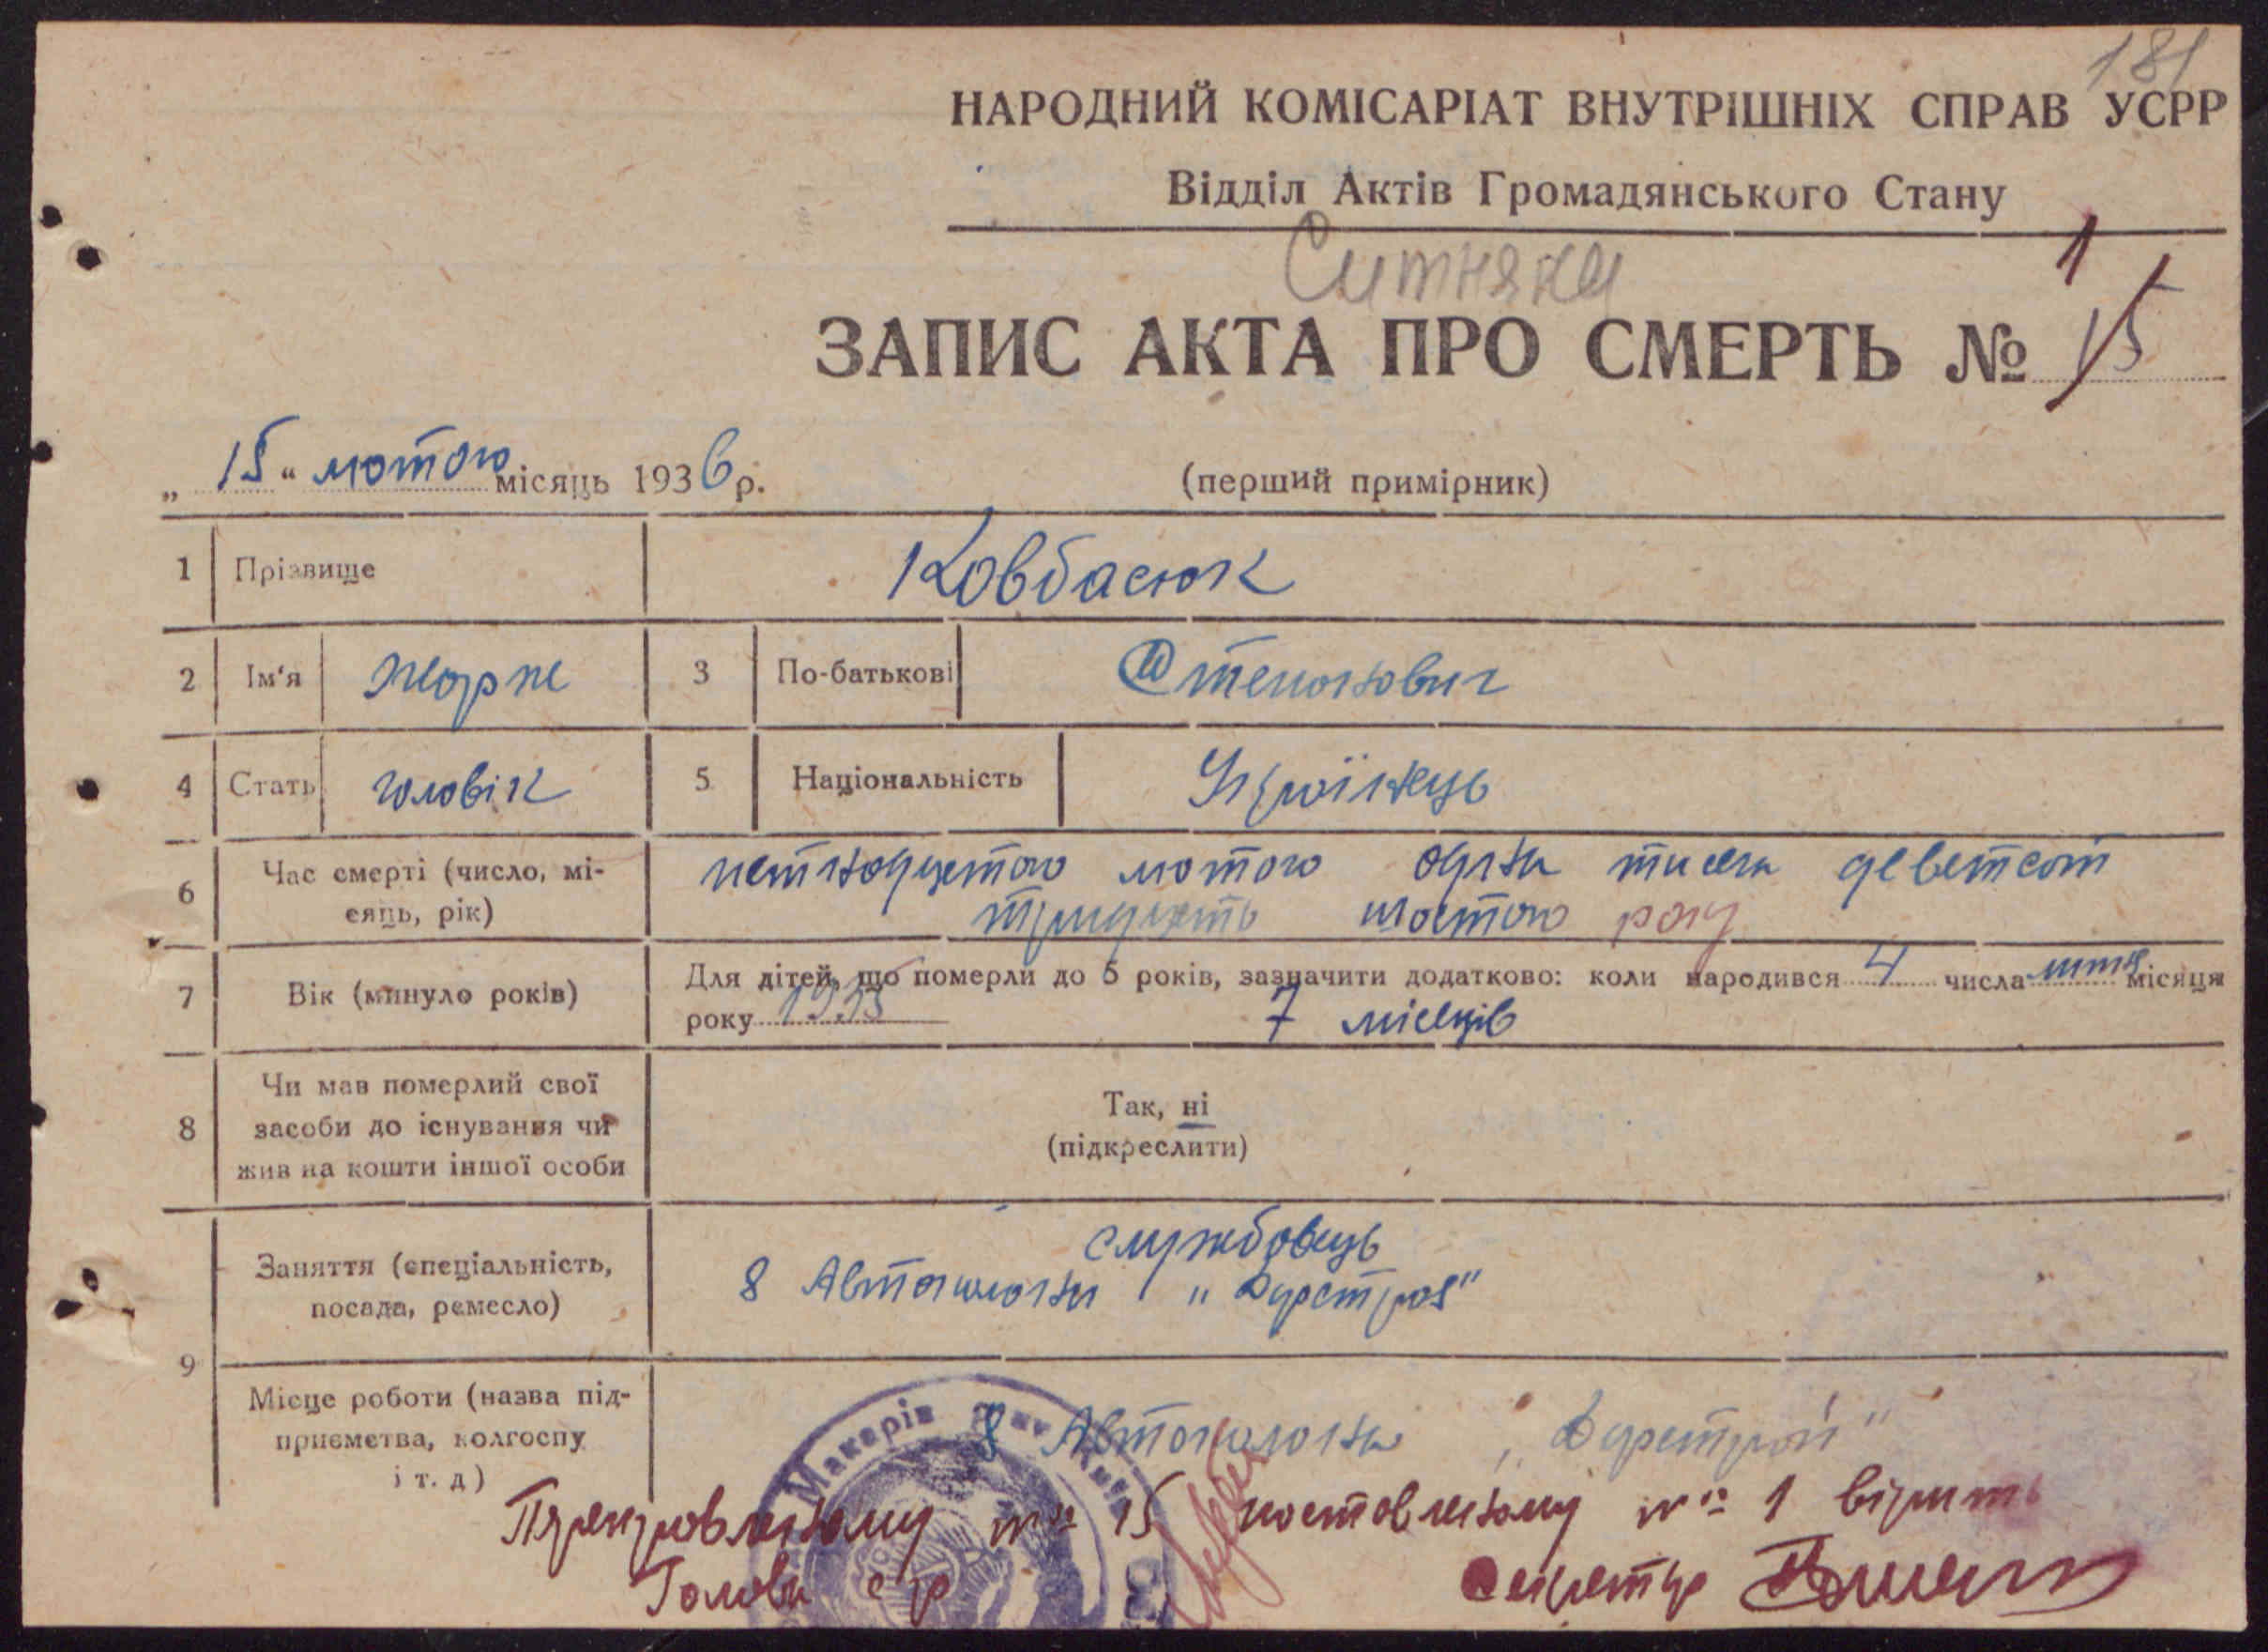 181
НАРОДНИЙ КОМІСАРІАТ ВНУТРІШНІХ СПРАВ УСРР
Відділ Актів Громадянського Стану
Ситняки
1
ЗАПИС АКТА ПРО СМЕРТЬ № 15
„ 15 “ лютого місяць 1936 р. (перший примірник)
1 Прізвище Ковбасюк
2 Ім'я Жорж 3 По-батькові
4 Стать чоловік 5 Національність Українець
6 Час смерті (число, мі-
сяць, рік)
петнадцятого лютого одна тисяча деветсот
тридцять шостого року
7 Вік (минуло років) Для дітей, що померли до 5 років, зазначити додатково: коли народився 4 числа липня місяця
року 1935 7 місяців
8 Чи мав померлий свої
засоби до існування чи
жив на кошти іншої особи
Так, ні
(підкреслити)
9 Заняття (спеціальність,
посада, ремесло)
службовець
8 Автоколона "Дорстроя"
Місце роботи (назва під-
приємства, колгоспу
і т. д)
8 Автоколона „Дорстрой"
Макарів
№ 15 поставленому № 1 вірить
Голова с/р Секретар